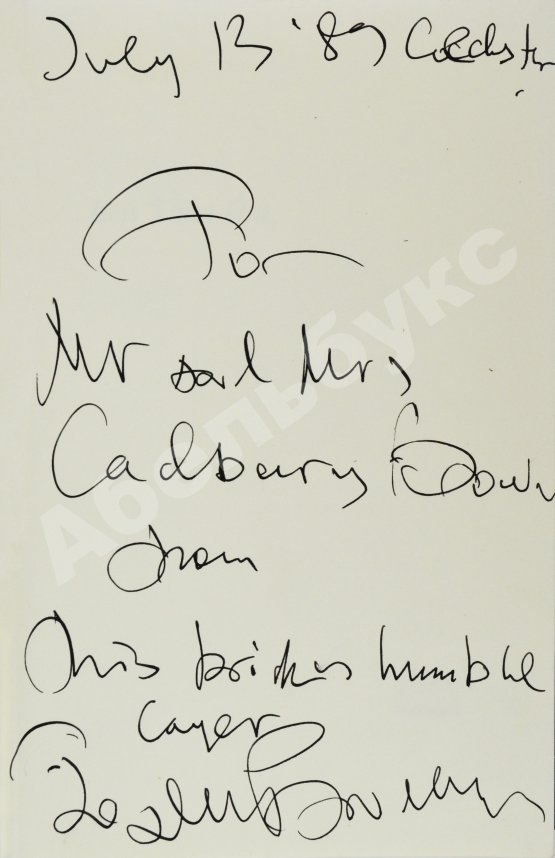 July 13 '89 Colchester
To
Mr and Mrs
Cadbury Brown
from
this brick's humble
layer
Joseph Brodsky
Абельбукс